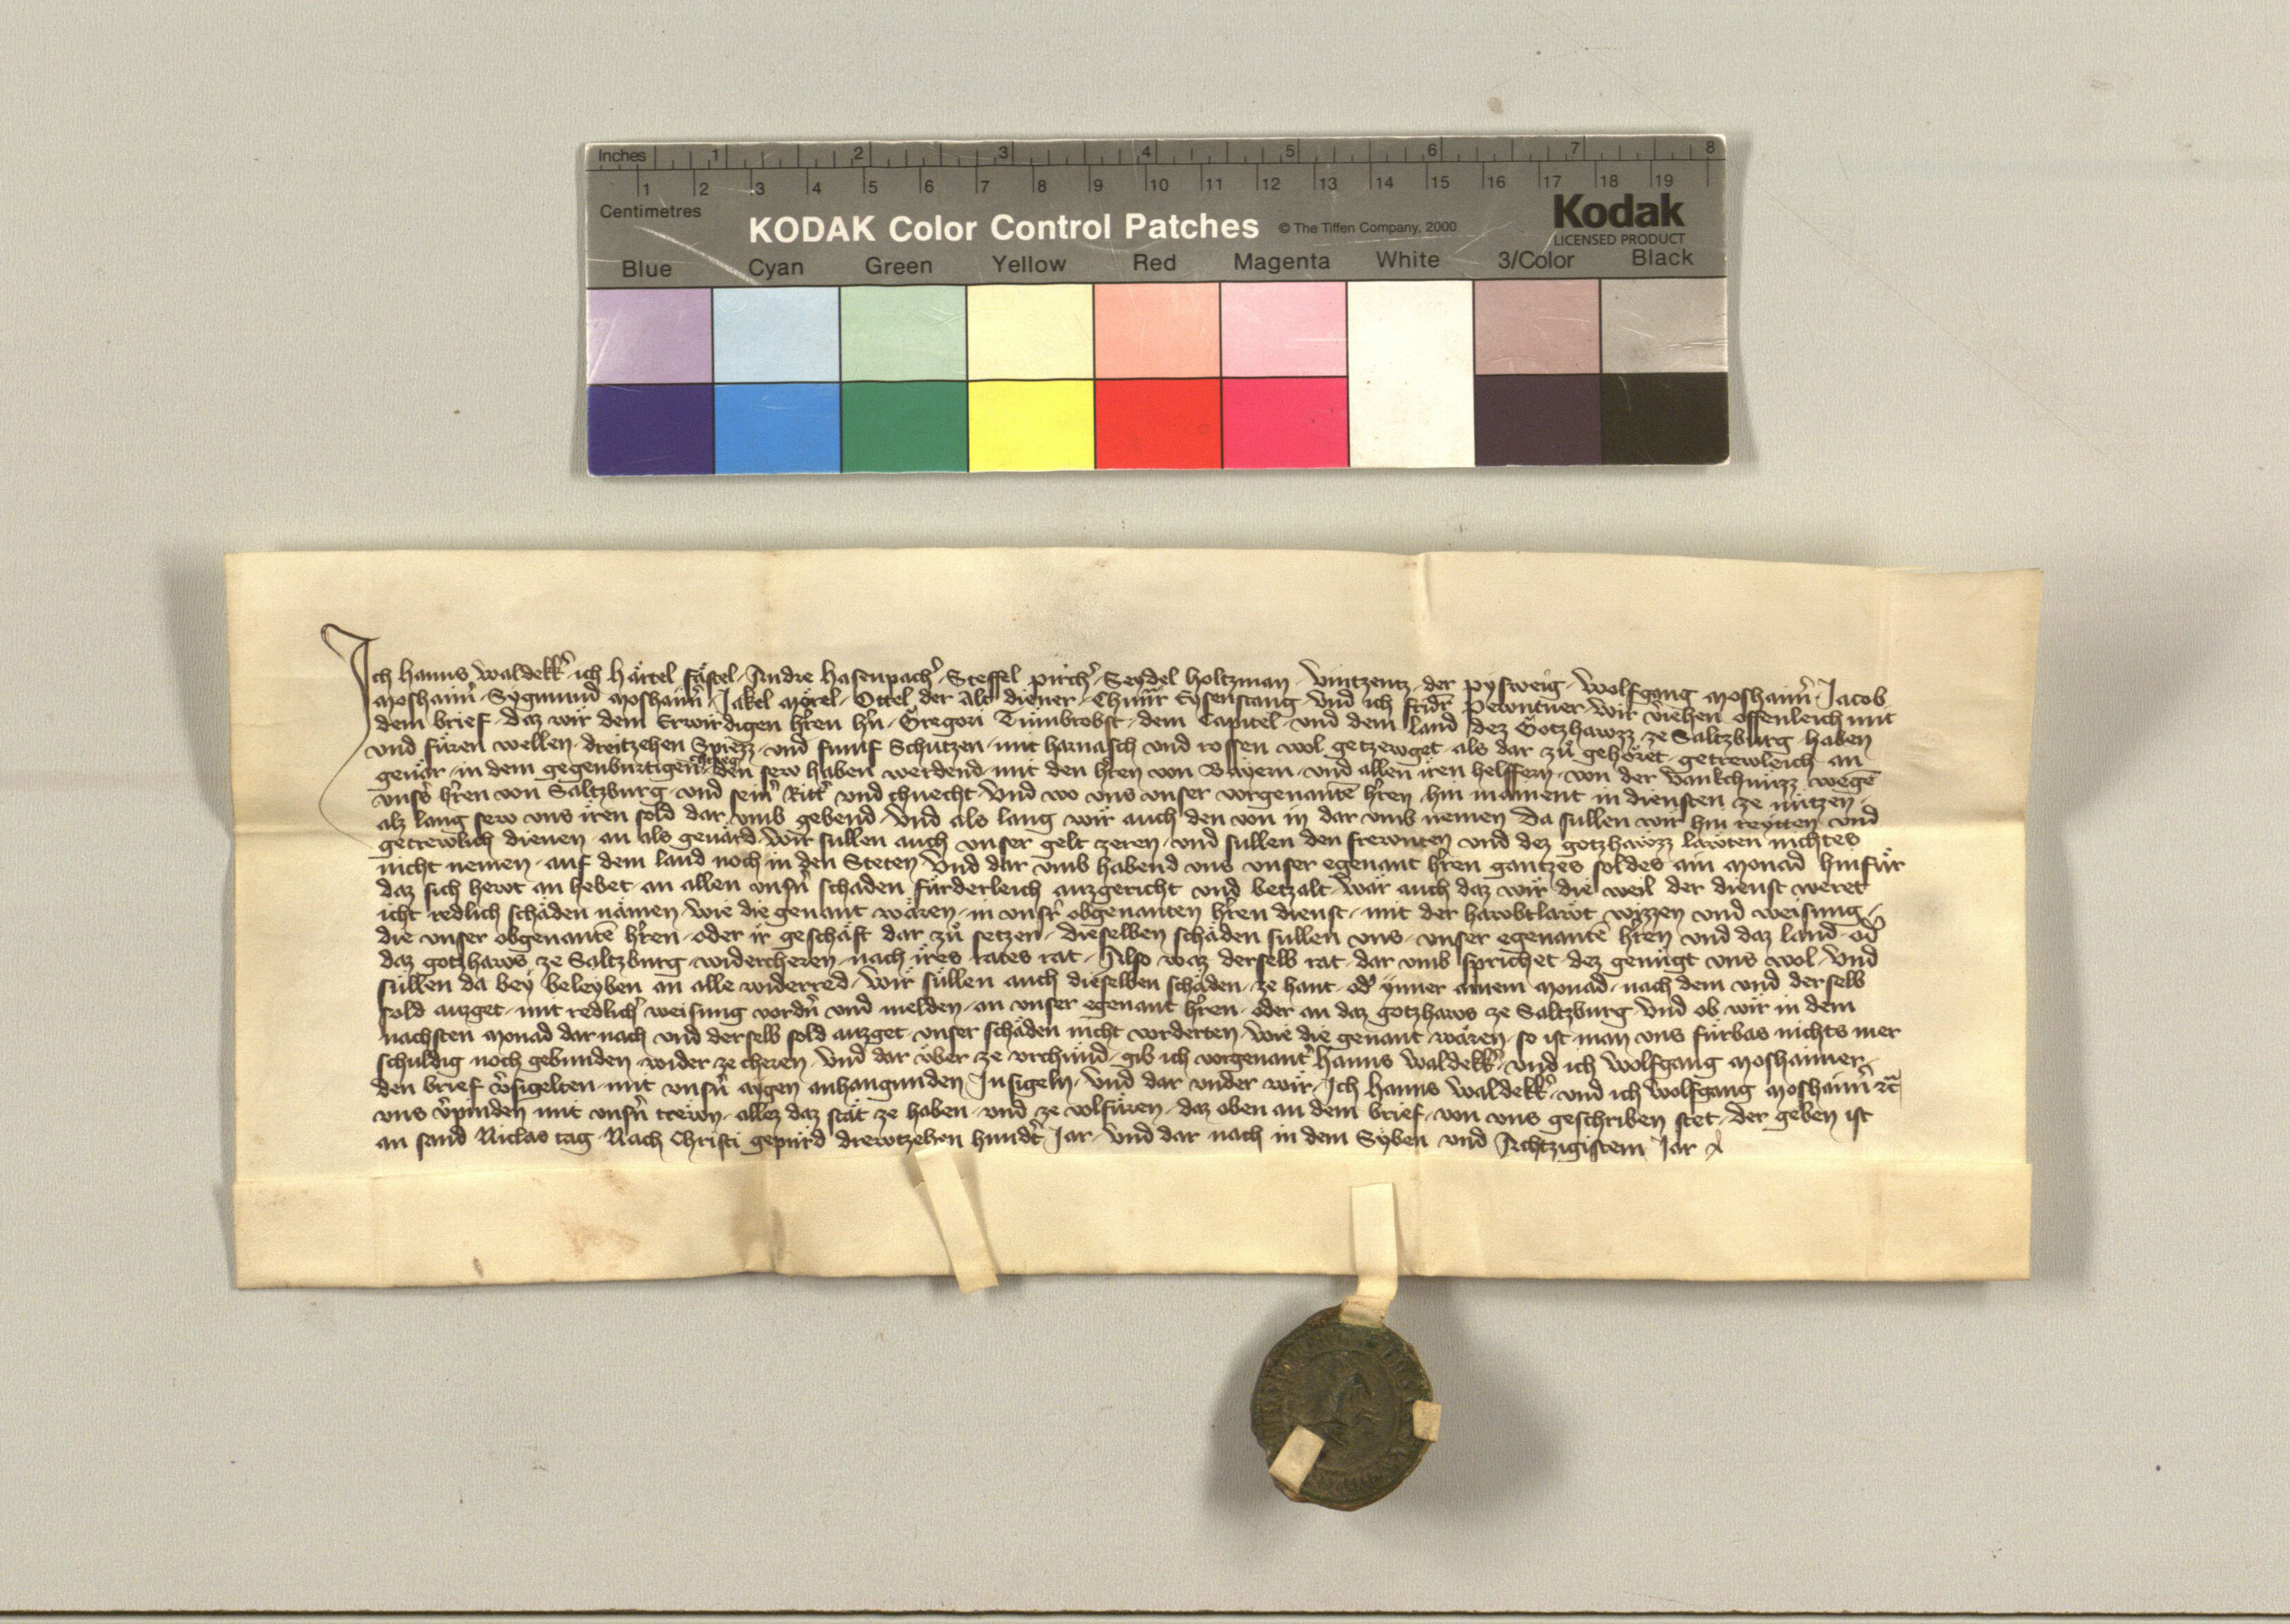 Inches 1 2 3 4 5 6 7 8
1 2 3 4 5 6 7 8 9 10 11 12 13 14 15 16 17 18 19
Centimetres
KODAK Color Control Patches © The Tiffen Company, 2000 Kodak
LICENSED PRODUCT
Blue Cyan Green Yellow Red Magenta White 3/Color Black
Ich Hanns Waldekk̉ ich Härtel Fästel Andre Hasenpach̉ Steffel Pirch̉ Seydel Holtzman Vintzentz der Pysweig Wolfgang Moshaim̉ Jacob
Moshaim̉ Sygmund Moshaim̉ Jakel Mörel Ottel der Alt diener Chunr̄ Eysenstang Und ich Fridr̄ Pewntner Wir viehen offenleich mit
dem brief daz wir dem Erwirdigen h̉ren h̉n Gregori Tůmbrobst dem Capitel und dem land dez Gotzhawzz ze Saltzburg haben
und füren wellen dreitzehen Spiezz und fumf Schutzen mit harnasch und rossen wol getzewget als dar zů gehöret getrewleich an
geuär in dem gegenburtigen̄ chrieg den sew haben werdend mit den h̉ren von Bayern und allen iren helffern von der vankchnüzz wegē
unsers̉ h̉ren von Saltzburg und sein̉ Ritt̉ und chnecht Und wo uns unser vorgenantē h̉ren hin mament in diensten ze nützen
alz lang sew uns iren sold dar umb gebend Und als lang wir auch den von in dar umb nemen Da sullen wir hin reytten und
getrewlich dienen an als geuärd Wir sullen auch unser gelt zeren und sullen den frewnten und dez gotzhawzz läwten nichtes
nicht nemen auf dem land noch in den Steten Und dar umb habend uns unser egenant h̉ren gantzes soldes ain Monad hinfür
daz sich hewt an hebet an allen unsn̉ schaden fürderleich auzgericht und betzalt Wär auch daz wir die weil der dienst weret
icht redlich schäden nämen wie die genant wären in unsr̉ obgenanten h̉ren dienst mit der hawbtläwt wizzen und weisung
die unser obgenantē h̉ren oder ir geschäft dar zů setzen dieselben schäden sullen uns unser egenantē h̉ren und daz land od̉
daz gotzhaws ze Saltzburg widercheren nach ires rates rat Also waz derselb rat dar umb sprichet dez genügt uns wol Und
süllen da bey beleyben an alle widerred Wir süllen auch dieselben schäden ze hant od̉ ynner ainem Monad nach dem und derselb
sold auzget mit redlich̉ weisung vordn̉ und melden an unser egenant h̉ren oder an daz gotzhaws ze Saltzburg Und ob wir in dem
nachsten Monad dar nach und derselb sold auzget unser schäden nicht vorderten wie die genant wären so ist man uns fürbas nichts mer
schuldig noch gebunden wider ze cheren Und dar über ze urchünd gib ich vorgenant̉ Hanns Waldekk̉ und ich Wolfgang Moshaimer
den brief v̉sigelten mit unsn̉ aygen anhangunden Insigeln Und dar under wir Ich Hanns Waldekk̉ und ich Wolfgang Moshaim̉ etc̄
uns v̉pinden mit unsn̉ trewn allez daz stät ze haben und ze volfüren daz oben an dem brief von uns geschriben stet der geben ist
an sand Niclas tag Nach Christi gepürd drewtzehen hundt̉ Jar und dar nach in dem Syben und Achtzigistem Jar